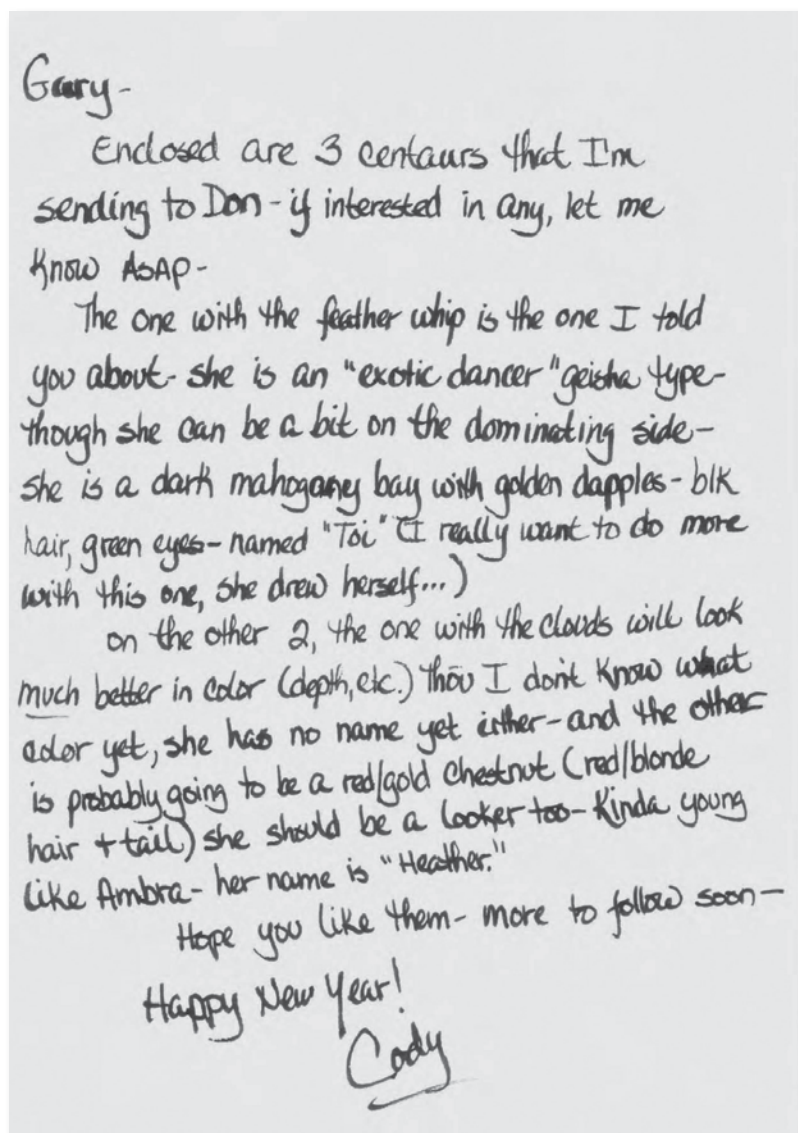 Gary-
Enclosed are 3 centaurs that I'm
sending to Don - if interested in any, let me
know ASAP-
The one with the feather whip is the one I told
you about - she is an "exotic dancer" geisha type-
though she can be a bit on the dominating side-
she is a dark mahogany bay with golden dapples - blk
hair, green eyes - named "Toi" (I really want to do more
with this one, she drew herself...)
on the other 2, the one with the clouds will look
much better in color (depth, etc.) thou I don't know what
color yet, she has no name yet either - and the other
is probably going to be a red/gold chestnut (red/blonde
hair + tail) she should be a looker too - Kinda young
like Ambra - her name is "Heather."
Hope you like them - more to follow soon-
Happy New Year!
Cody